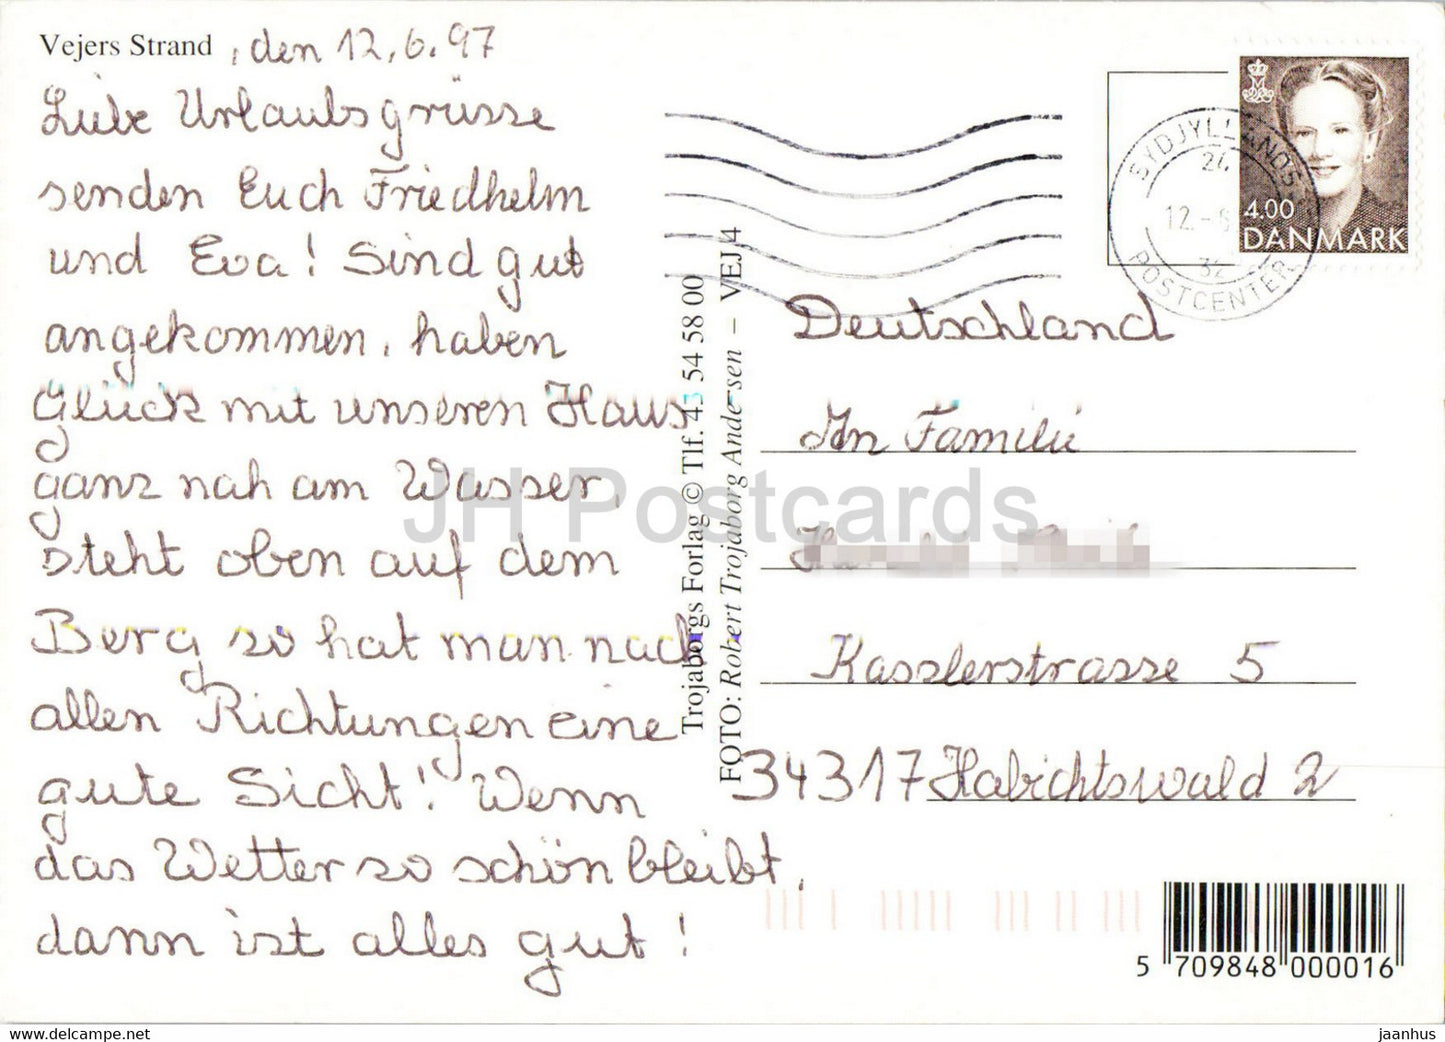 Vejers Strand, den 12.6.97
Liebe Urlaubsgrüsse
senden Euch Friedhelm
und Eva! Sind gut
angekommen, haben
Glück mit unseren Haus
ganz nah am Wasser,
steht oben auf dem
Berg so hat man nach
allen Richtungen eine
gute Sicht! Wenn
das Wetter so schön bleibt,
dann ist alles gut!
Trojaborgs Forlag © Tlf. 43 54 58 00
FOTO: Robert Trojaborg Andersen – VEJ 4
SYDJYLLANDS
24
12.-6
32
POSTCENTER
4.00
DANMARK
Deutschland
An Familie
Kasslerstrasse 5
34317 Habichtswald 2
JH Postcards
5 709848 000016
https://www.delcampe.net
jaanhus